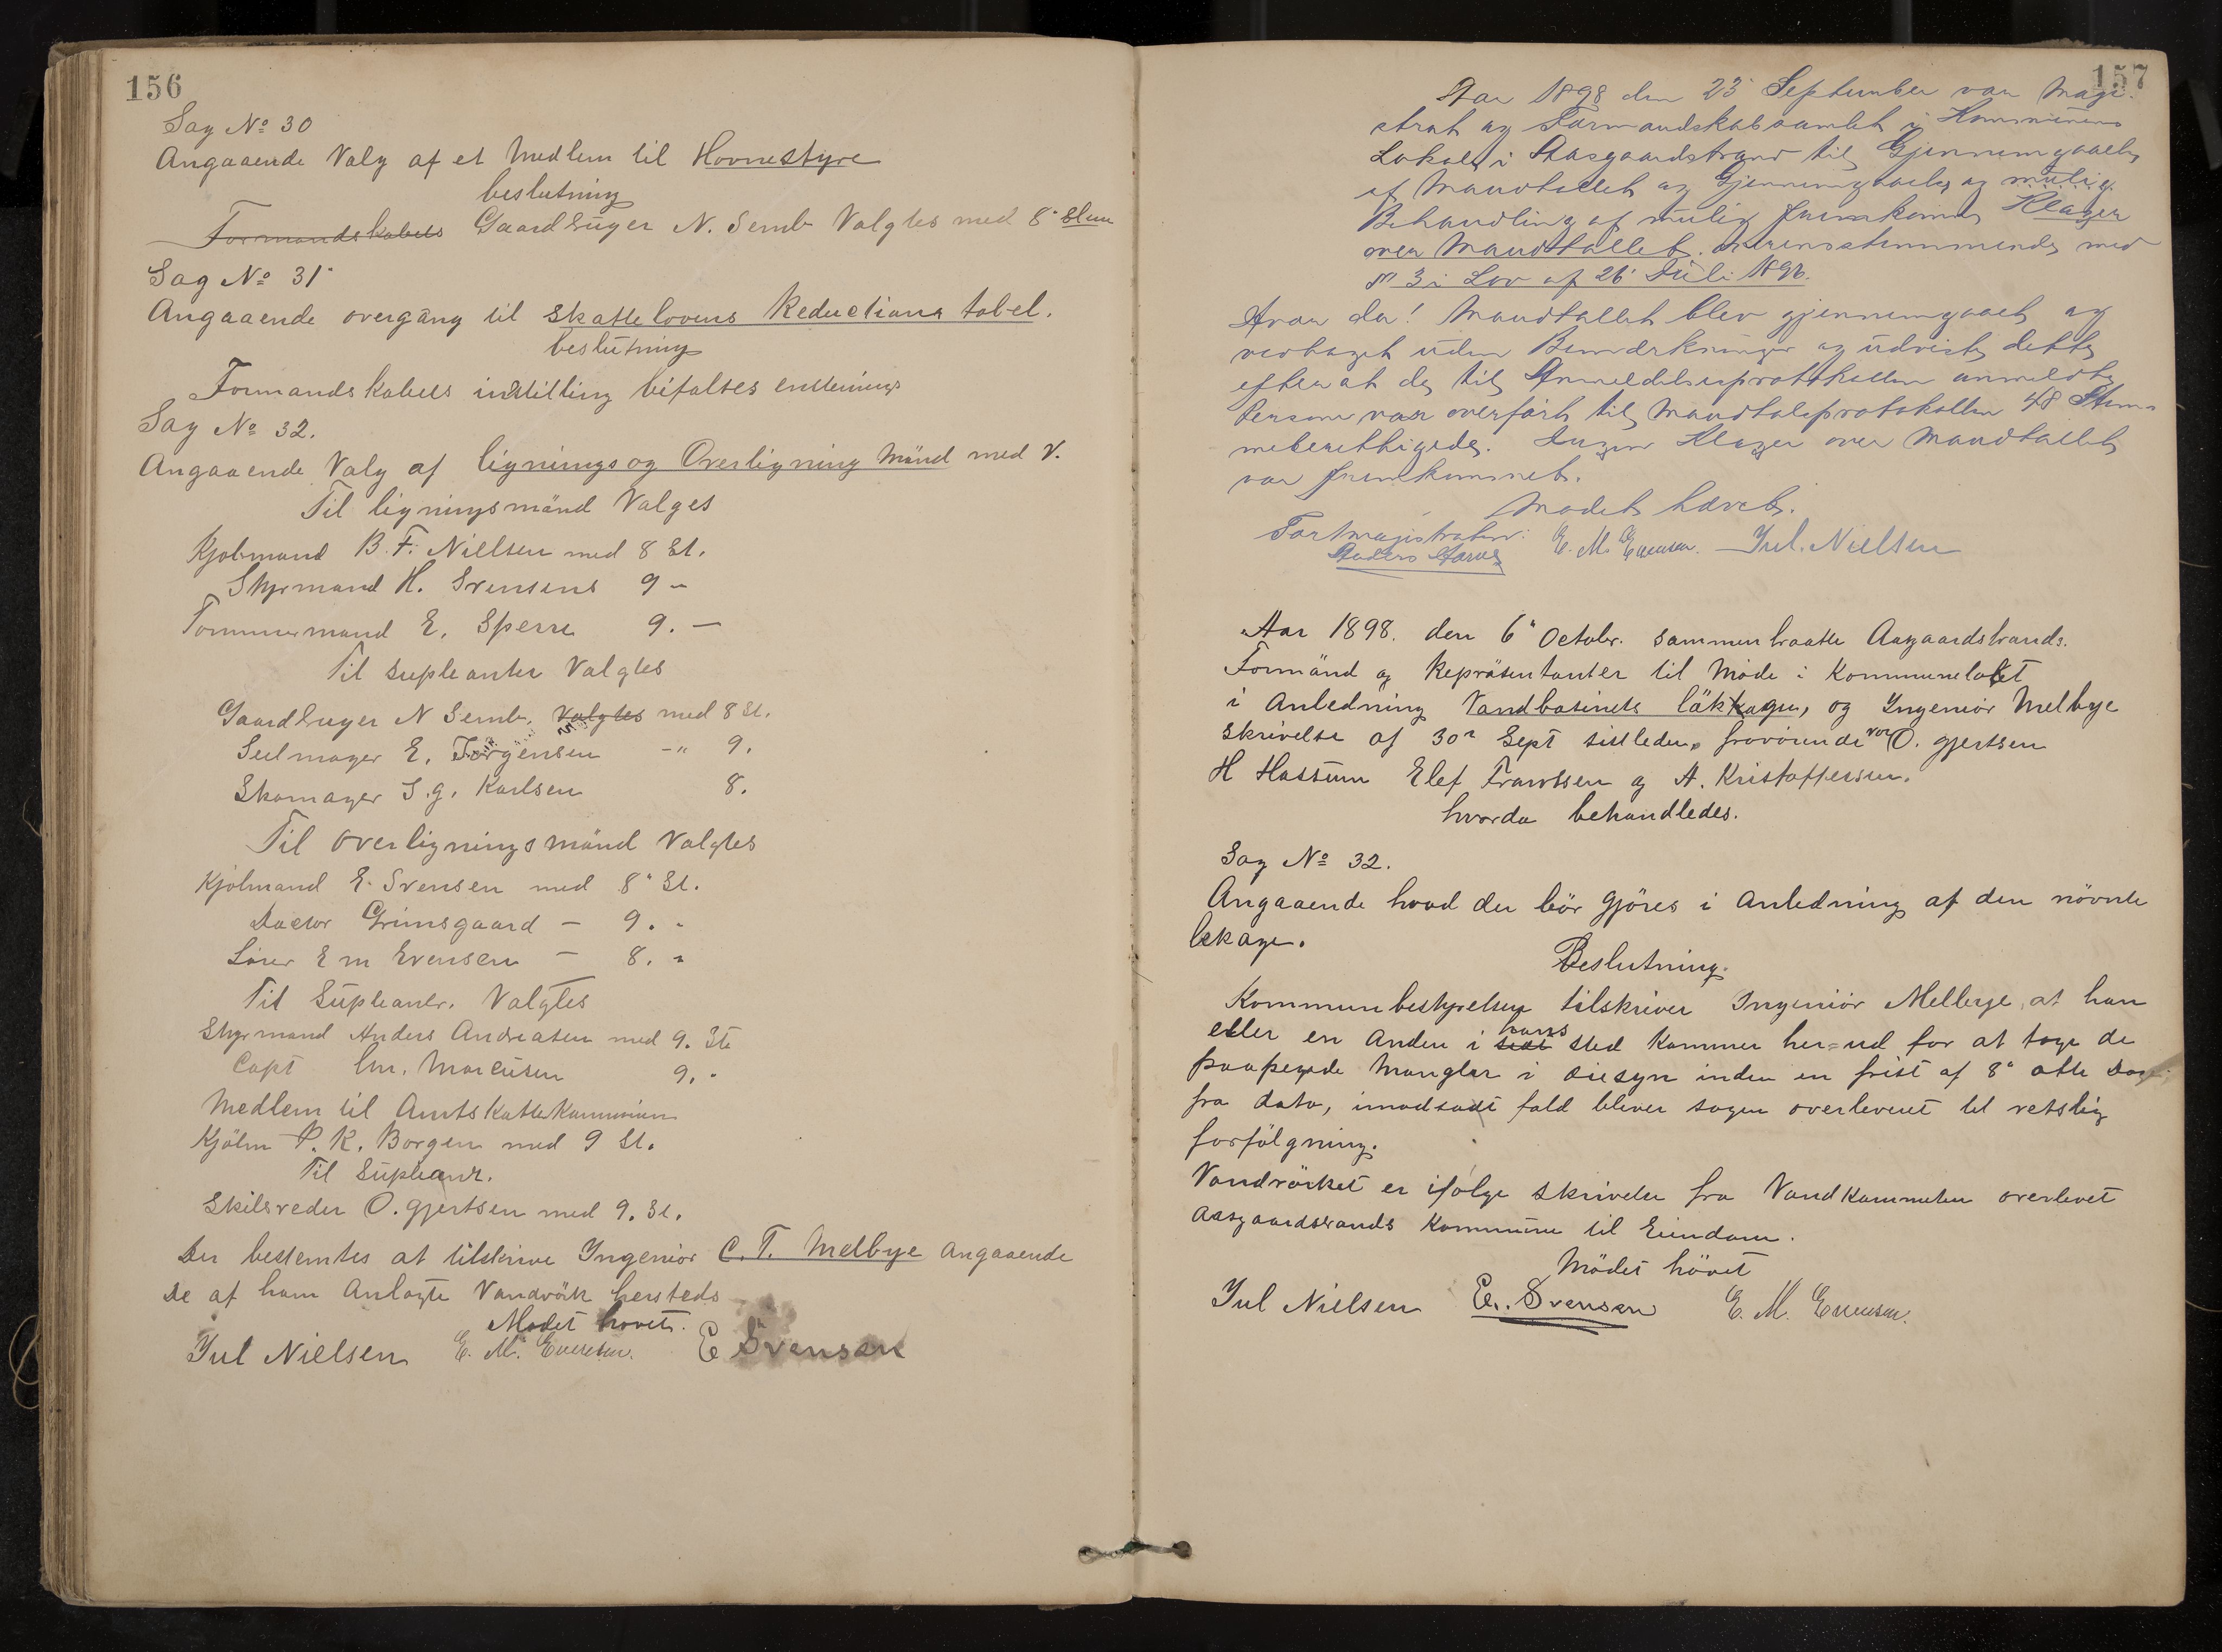 156
Sag No 30
Angaaende Valg af et Medlem til Hovnestyre
beslutning
Formandskabets Gaardbuger N. Semb Valgtes med 8" Stem
Sag No 31"
Angaaende overgang til Skattelovens Reductions tabel.
beslutning
Formandskabets instilling bifaltes enstemings
Sag No 32.
Angaaende Valg af lignings og Overligning Mänd med V.
Til ligningsmänd Valges
Kjobmand B. F. Nielsen med 8 St.
Styrmand H. Svensens 9 –
Tommermand E. Sperre 9. –
Til supleanter Valgtes
Gaardbuger N Semb. Valgtes med 8 St.
Seilmager E. Jörgensen -" 9.
Skomager S. g. Karlsen 8.
Til overligningsmänd Valgtes
Kjobmand E. Svensen med 8" St.
Doctor Grimsgaard – 9. "
Lärer E m Evensen – 8. "
Til Supleantr. Valgtes
Styrmand Anders Andreasen med 9. St
Capt Chr. Marcusen 9. "
Medlem til Amtskattekommision
Kjöbm P. K. Borgen med 9 St.
Til Supleant.
Skibsreder O. gjertsen med 9. St.
Der bestemtes at tilskrive Ingeniör C. T. Melbye Angaaende
De af ham Anlagte Vandvärk hersteds
Modet hovet.
Jul Nielsen E. M. Evensen. E Svensen
157
Aar 1898 den 23 September var Magi-
strat og Formandskab samlet i Kommunens
Lokale i Aasgaardstrand til Gjennemgaaelse
af Mandtallet og Gjennemgaaelse og mulig
Behandling af mulig fremkomne Klager
over Mandtallet. overensstemmende med
§ 3 i Lov af 26' Juli 1896.
Hvor da! Mandtallet blev gjennemgaaet og
vedtaget uden Bemærkninger og udviste dette
efterat de til Anmeldelsesprotokollen anmeldte
Personer var overført til Mandtalsprotokollen 48 Stem-
meberettigede. Ingen Klager over Mandtallet
var fremkommet.
Mødet hævet.
For Magistraten: E. M. Evensen. Jul. Nielsen
Aar 1898. den 6" October. sammentraatte Aasgaardstrands.
Formänd og Repräsentanter til Möde i Kommunelokalet
i Anledning Vandbasinets läkkage, og Ingeniör Melbye
Skrivelse af 30" Sept sistleden, fravärende var O. gjertsen
H Hassum Elef Frantsen og A. Kristoffersen.
hvorda behandledes.
Sag No 32.
Angaaende hvad der bör gjöres i Anledning af den növnte
lekage.
Beslutning.
Kommunbestyrelsen tilskriver Ingeniör Melbye, at han
eller en Anden i sedt hans sted kommer her=ud for at tage de
paapegede Mangler i öiesyn inden en frist af 8" otte Dage
fra dato, imodsadt fald bliver sagen overleveret til retslig
forfölgning.
Vandvärket er ifölge skrivelse fra Vandkommiteen overlevet
Aasgaardstrands Kommune til Eiendom.
Mödet hövet
Jul Nielsen E. Svensen E. M. Evensen.